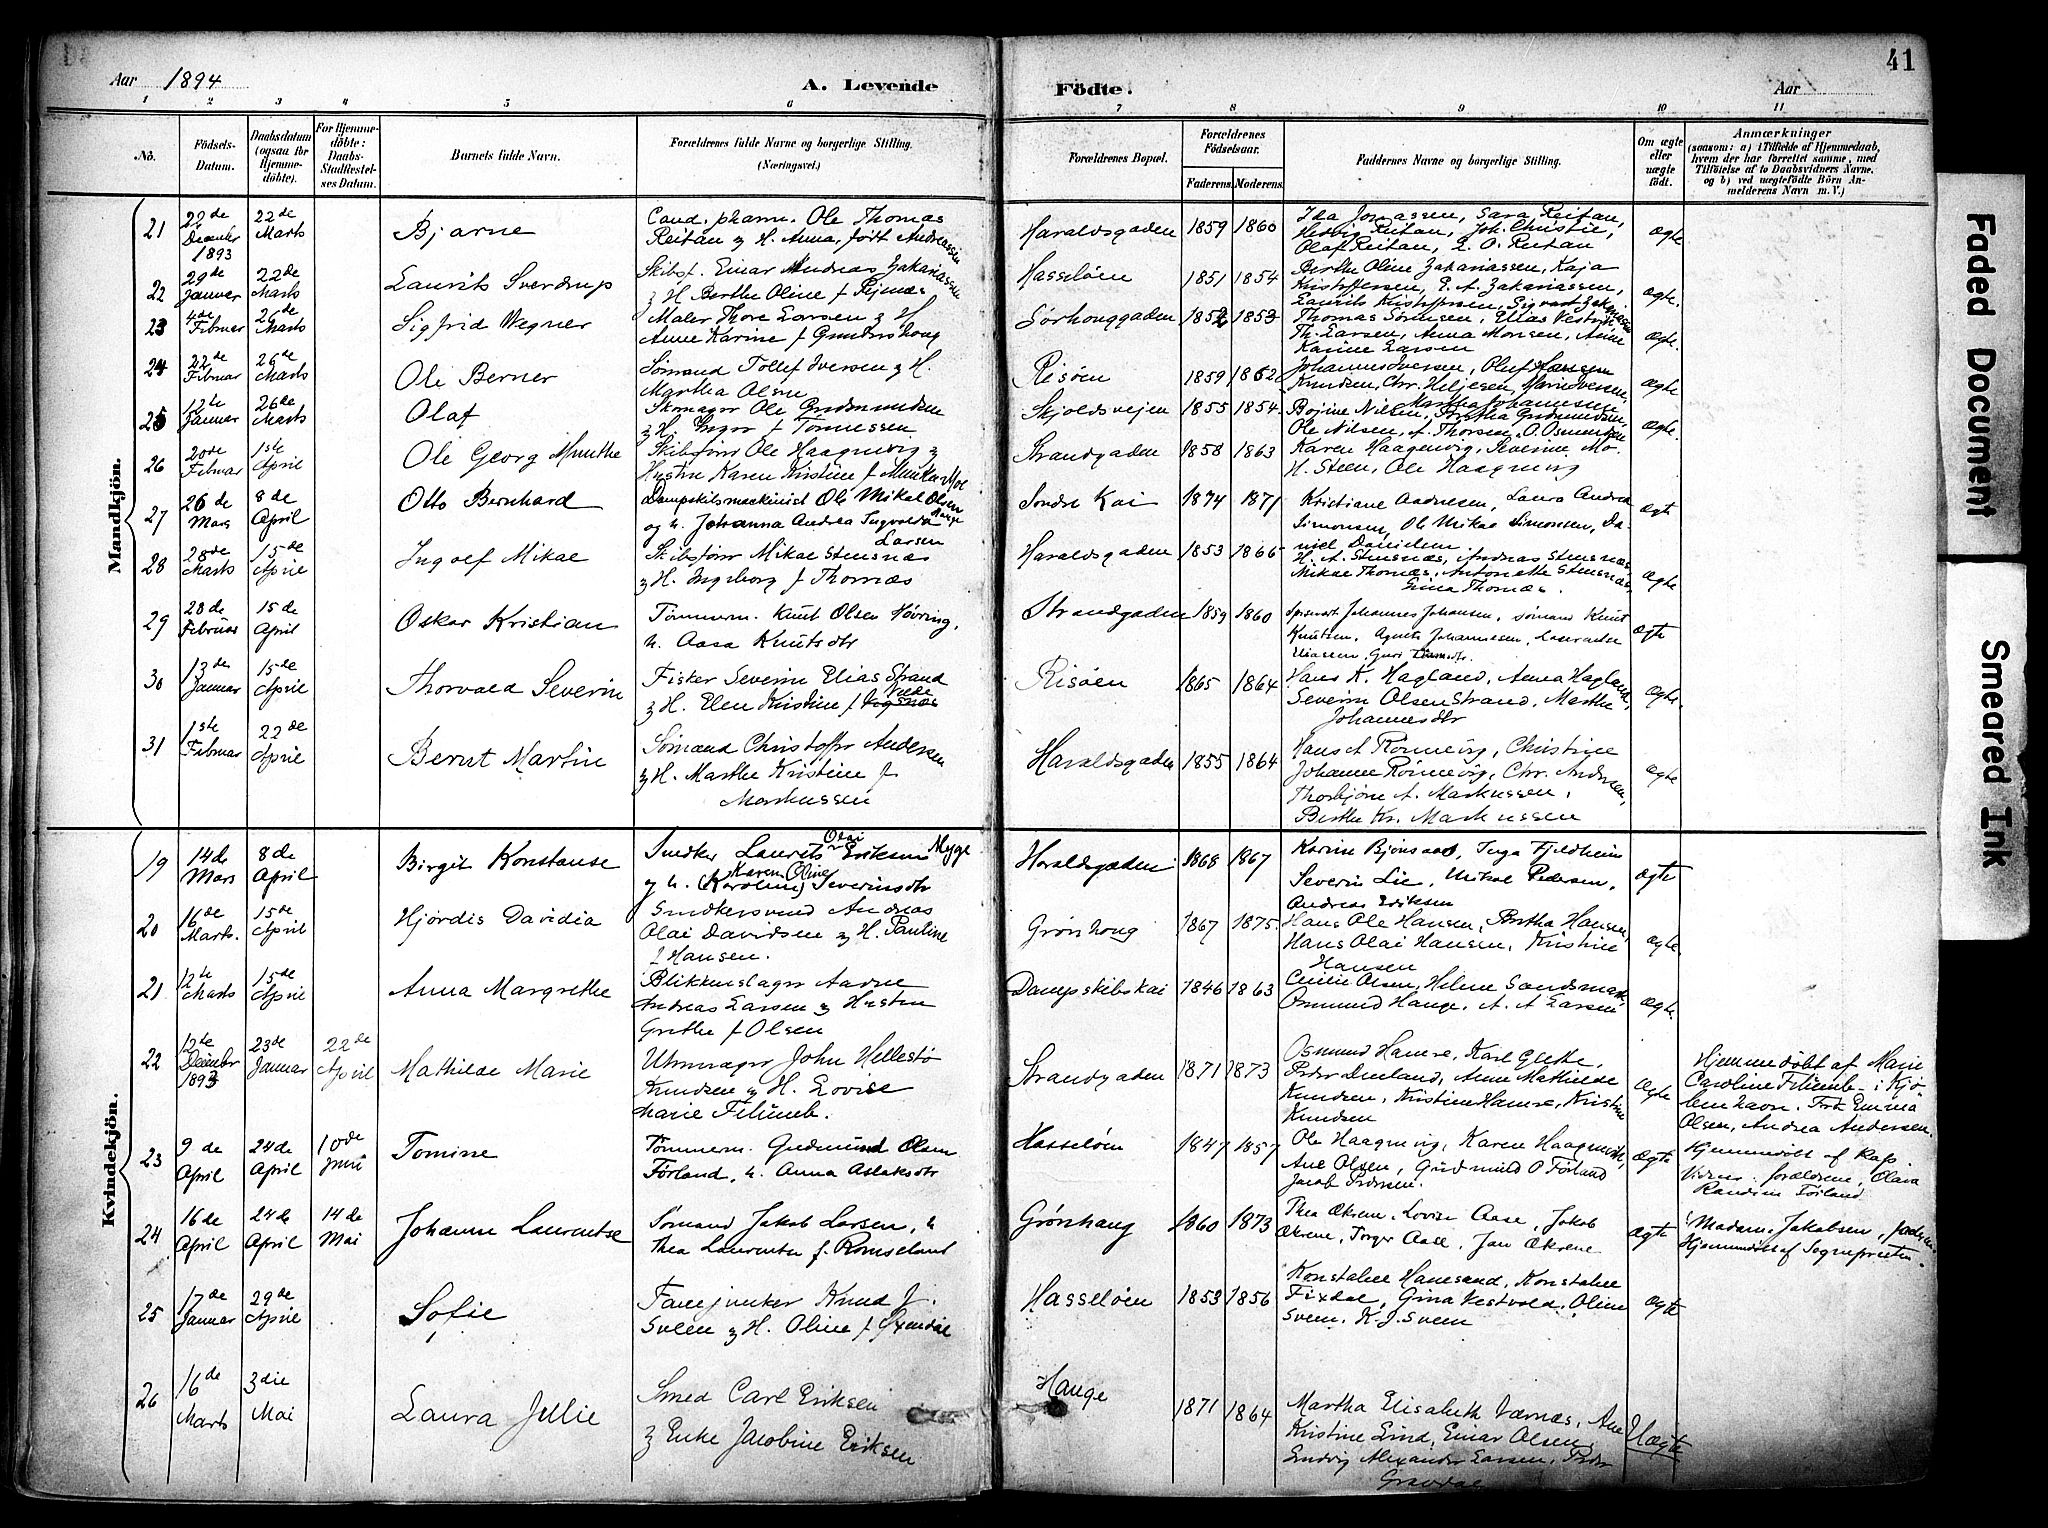 Aar 1894
A. Levende
Födte.
Aar
41
1 2 3 4 5 6 7 8 9 10 11
No.
Födsels-
Datum.
Daabsdatum
(ogsaa för
Hjemme-
döbte).
For Hjemme-
döbte:
Daabs-
Stadfæstel-
ses Datum.
Barnets fulde Navn.
Forældrenes fulde Navne og borgerlige Stilling.
(Næringsvei.)
Forældrenes Bopæl.
Forældrenes
Födselsaar.
Faderens. Moderens.
Faddernes Navne og borgerlige Stilling.
Om ægte
eller
uægte
födt.
Anmærkninger
(saasom: a) i Tilfælde af Hjemmedaab,
hvem der har forrettet samme, med
Tilföielse af to Daabsvidners Navne,
og b) ved uægtefödte Börn An-
melderens Navn m. V.)
Mandkjön.
21
22de
December
1893
22de
Marts
Bjarne
Cand. pharm. Ole Thomas
Reitan & H. Anna, født Andreassen
Haraldsgaden 1859 1860
Ida Jonassen, Sara Reitan,
Hedvig Reitan, Joh. Christie,
Olaf Reitan, E. O. Reitan
Ægte
22
29de
Januar
22de
Marts
Laurits Sverdrup
Skibsf. Einar Andreas Zakariassen
& H Berthe Oline f
Hasseløen 1851 1854
Berthe Oline Zakariassen, Kaja
Kristoffersen, E. A. Zakariassen,
Laurits Kristoffersen, Sigvart Zakariassen
Ægte.
23
4de
Februar
26de
Marts
Sigfrid Wegner
Maler Thore Larsen & H
Anne Karine f Gundershoug
Sørhouggaden 1852 1853
Thomas Sørensen, Elias Vestvik
Th. Larsen, Anna Monsen, Anne
Karine Larsen
Ægte.
24
22de
Februar
26de
Marts
Ole Berner
Sømand Tollef Iversen & H.
Martha Olsen
Risøen 1859 1862
Johannes Iversen, Oluf Hansen
Knudsen, Chr. Heljesen, Marie Iversen,
Martha Johannessen
Ægte
25
12te
Januar
26de
Marts
Olaf
Skomager Ole Gudmundsen
& H. Inger f Tønnessen
Skjoldsvejen 1855 1854
Bojine Nilsen, Bertha Gudmundsen,
Ole Nilsen, A. Thorsen, O. Osmundsen
Ægte.
26
20de
Februar
1ste
April
Ole Georg Munthe
Skibsfører Ole Haagenvig &
Hustru Karen Kristine f Munthe Moe
Strandgaden 1858 1863
Karen Haagenvig, Severine Mo.
H. Steen, Ole Haagenvig
27
26de
Mars
8de
April
Otto Bernhard
Dampskibsmaskinist Ole Mikal Olsen
Hauge
og h. Johanna Andrea Ingvalda
Larsen
Søndre Kai 1874 1871
Kristiane Aadnesen, Laura Andrea
Simonsen, Ole Mikal Simonsen, Da-
niel Danielsen
Ægt
28
28de
Marts
15de
April
Ingolf Mikal
Skibsfører Mikal Stensnæs
& H. Ingeborg f Thornæs
Haraldsgaden 1853 1866
H. A. Stensnæs, Andreas Stensnæs
Mikal Thornæs, Antonette Stensnæs,
Gina Thornæs.
Ægte
29
28de
Februar
15de
April
Oskar Kristian
Tømmerm. Knut Olsen Høvring,
h. Aasa Knutsdtr
Strandgaden 1859 1860
Johannes Johansen, sømand Knut
Knutsen, Agnete Johannesen,
Eliassen, Guri
Ægte
30
13de
Januar
15de
April
Thorvald Severin
Fisker Severin Elias Strand
& H. Elen Kristine f
Risøen 1865 1864
Hans K. Hagland, Anna Hagland,
Severin Olsen Strand, Marthe
Johannesdtr
Ægte.
31
1ste
Februar
22de
April
Bernt Martin
Sømand Christoffer Andersen
& H. Marthe Kristine f
Markussen
Haraldsgaden 1855 1864
Hans A Rønnevig, Christine
Johanne Rønnevig, Chr. Andersen,
Thorbjørn A. Markussen,
Berthe Kr. Markussen
Ægte
Kvindekjön.
19
14de
Mars
8de
April
Birgit Konstanse
Snedker Laurits Olai Eriksen Myge
og h. (Karoline) Karen Oline Severinsdtr
Haraldsgaden 1868 1867
Karine Bjønsaas, Inga Fjeldheim
Severin Lie, Mikal Pedersen,
Andreas Eriksen
Ægte
20
16de
Marts.
15de
April
Hjørdis Davidia
Snedkersvend Andreas
Olai Davidsen & H. Pauline
f Hansen.
Grønhoug 1867 1875.
Hans Ole Hansen, Bertha Hansen,
Hans Olai Hansen, Kristine
Hansen
Ægte.
21
12te
Marts
15de
April
Anna Margrethe
Blikkenslager Aadne
Andreas Larsen & Hustru
Grethe f Olsen
Dampskibskai 1846 1863
Cecilie Olsen, Helene Sandsmark,
Osmund Hauge, A. A Larsen
Ægte.
22
12te
December
1893
23de
Januar
22de
April
Mathilde Marie
Uhrmager John Hellestø
Knudsen & H. Lovise
Marie Filtimb.
Strandgaden 1871 1873
Osmund Hamre, Karl Grette,
Peder Dueland, Anne Mathilde
Knudsen, Kristine Hamre, Kristine
Knudsen
Ægte
Hjemmedøbt af Marie
Caroline Filtimb i Kjø-
benhavn. Frk Emma
Olsen, Andrea Andersen.
23
9de
April
24de
April
10de
Juni
Tomine
Tømmerm. Gudmund Olsen
Førland, h. Anna Aslaksdtr
Hasseløen 1847 1857
Ole Haagenvig, Karen Haagenvik,
Ane Olsen, Gudmund O Førland
Jacob Pedersen.
Ægte
Hjemmedøbt af Kap.
Vidner: forældrene, Olava
Randine Førland
24
16de
April
24de
April
14de
Mai
Johanne Laurentse
Sømand Jakob Larsen, h
Thea Laurentse f. Romseland
Grønhaug 1860 1873
Thea Økrene, Lovise Aase, Jakob
Økrene, Torger Aase, Jan Økrene
Ægte
Madam Jakobsen, faderen.
Hjemmedøbt af Sognepresten.
25
17de
Januar
29de
April
Sofie
Fanejunker Knud J.
Sveen & H. Oline f Syrndal
Hasseløen 1853 1856
Konstabel Hanesand, Konstabel
Fixdal, Gina Vestvold, Oline
Sveen, K. J. Sveen
Ægte
26
16de
Marts
3die
Mai
Laura Julie
Smed Carl Eriksen
& Enke Jacobine Eriksen
Hauge
1871 1864
Martha Elisabeth Værnæs, Ane
Kristine Lind, Einar Olsen,
Ludvig Alexander Larsen, Peder
Gravdal
Uægte
Faded Document
Smeared Ink